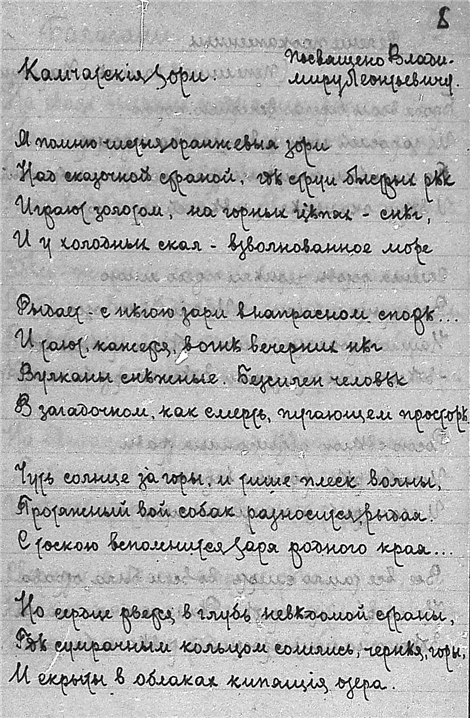 8
Камчатскія зори.
Посвящено Влади-
миру Леонтьевичу.
Я помню чистыя оранжевыя зори
Над сказочной страной, гдѣ струи быстрых рѣк
Играют золотом, на горных цѣпях - снѣг,
И у холодных скал - взволнованное море
Рыдает - с нѣгою зари в напрасном спорѣ...
И тают, кажется, в огнѣ вечерних нѣг
Вулканы снѣжные. Безсилен человѣк
В загадочном, как смерть, пугающем просторѣ.
Чуть солнце за горы, и тише плеск волны,
Протяжный вой собак разносится, рыдая.
С тоскою вспомнится заря родного края...
Но сердце рвется в глубь невѣдомой страны,
Гдѣ сумрачным кольцом сошлись, чернѣя, горы,
И скрыты в облаках кипящія озера.